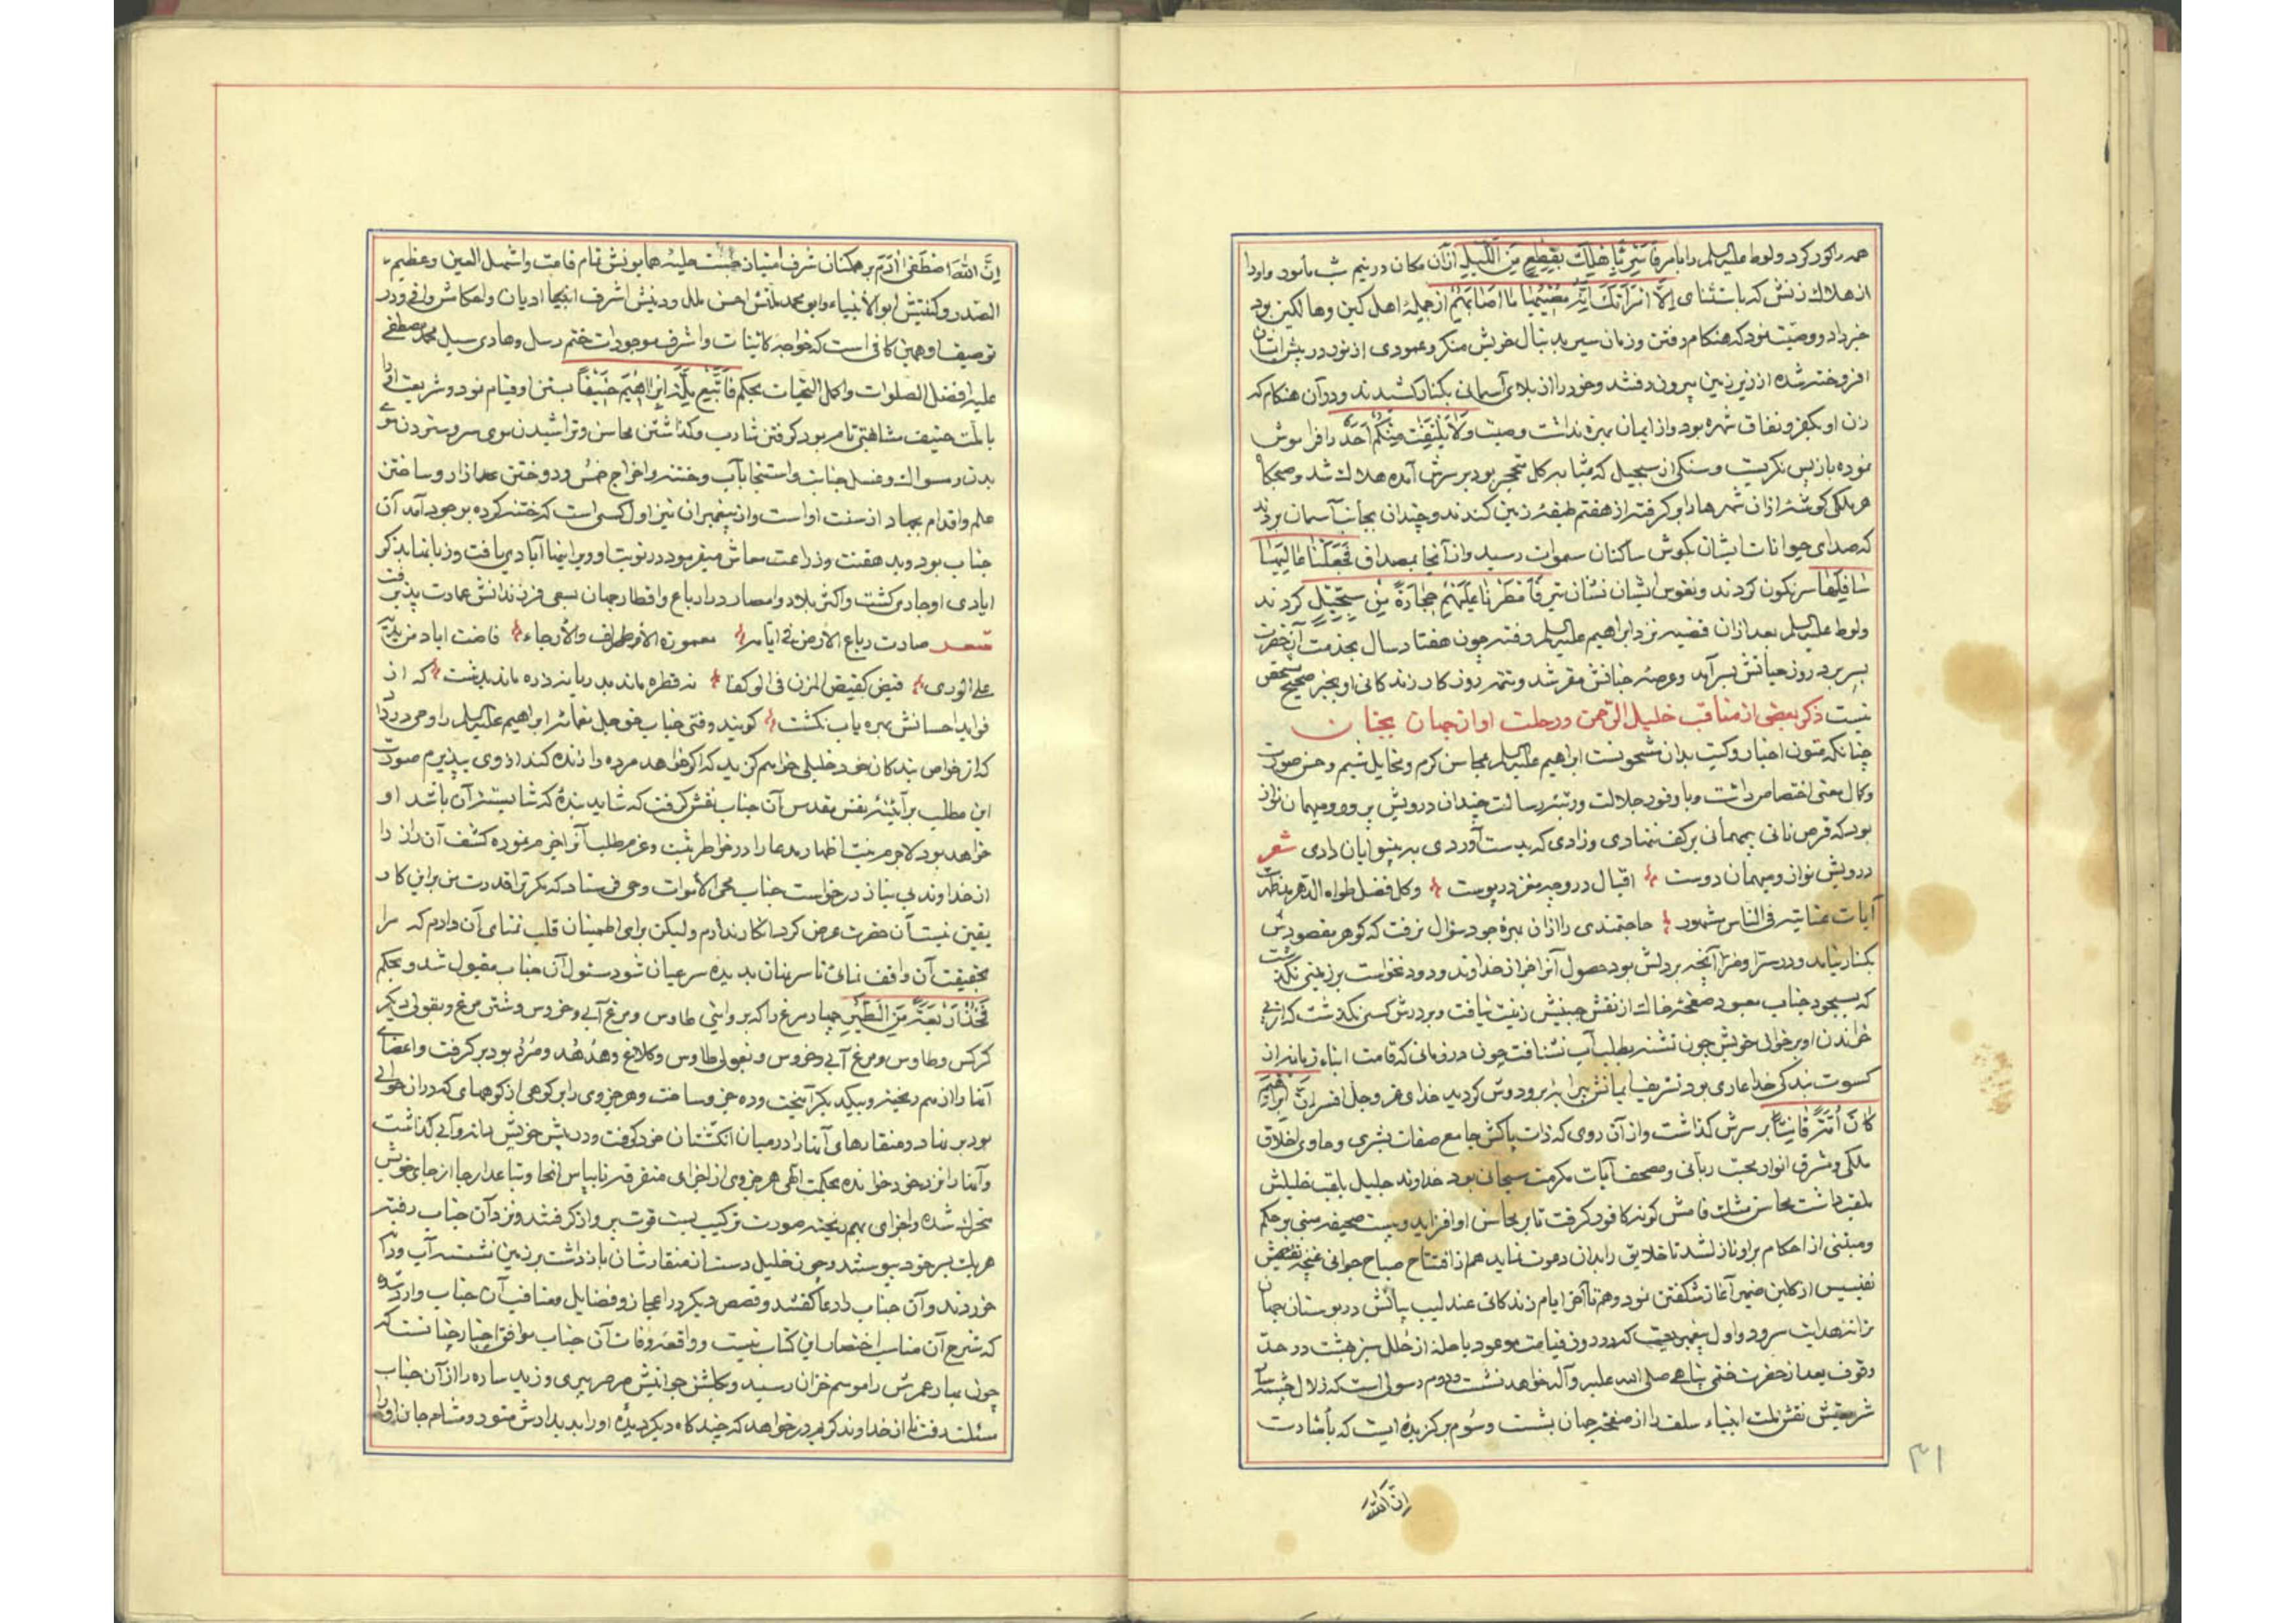 همه را کور کرد و لوط علیه السلم را بامر فَاَسْرِ بِاَهْلِكَ بِقِطْعٍ مِنَ اللَّيْلِ ازان مکان در نیم شب مامور و او را
از هلاك زنش که باستثنای اِلَّا امْرَاَتَكَ اِنَّهُ مُصِيبُهَا مَا اَصَابَهُمْ از جملهٔ اهل کین و هالکین بود
خبر داد و وصیت نمود که هنکام رفتن و زمان سیر بدنبال خویش منکر و عمودی از نور در پیش ایشان
افروخته شده از زیر زمین بیرون رفتند و خود را از بلای آسمانی بکنار کشیدند و در آن هنکام که
زن او بکفر و نفاق شهره بود و از ایمان بهره نداشت وصیت وَلَا يَلْتَفِتْ مِنْكُمْ اَحَدٌ را فراموش
نموده باز پس نکریست و سنکی از سجیل که مشابه کل متحجر بود بر سرش آمده هلاك شد و صبحکاه
هر ملکی کوشهٔ ازان شهرها را بر کرفته از هفتم طبقهٔ زمین کندند و چندان بجانب آسمان بردند
که صدای حیوانات ایشان بکوش ساکنان سموات رسید و از آنجا بمصداق فَجَعَلْنَا عَالِيَهَا
سَافِلَهَا سرنکون کردند و نفوس ایشان نشان تیر فَاَمْطَرْنَا عَلَيْهِمْ حِجَارَةً مِنْ سِجِّيلٍ کردند
و لوط علیه السلم بعد ازان قضیه نزد ابراهیم علیه السلم رفته چون هفتاد سال بخدمت آن حضرت
بسر برد روز حیاتش بسر آمد و عرصهٔ جنانش مقر شد و تتمه روزکار زندکانی او بخبر صحیح مشخص
نیست ذکر بعضی از مناقب خلیل الرحمن و رحلت او از جهان بجنان
چنانکه متون اخبار و کتب بدان مشحونست ابراهیم علیه السلم بمحاسن کرم و مخایل شیم و حسن صورت
و کمال معنی اختصاص داشت و با وفور جلالت و رتبهٔ رسالت چندان درویش پرور و میهمان نواز
بود که قرص نانی بیمهمانی بر کف ننهادی و زادی که بدست آوردی به بینوایان دادی شعر
درویش نواز و میهمان دوست اقبال درو چو مغز در پوست وکل فضل طواه الدهر مظهر
آیات عنایته فی الناس مشهود حاجتمندی را ازان بهرهٔ جود سؤال نرفت که کوهر مقصودش
بکنار نیامد و در سرا و ضرا آنچه بر دلش بود حصول آنرا جز از خداوند ودود نخواست بر زمینی نکذشت
که بسجود جناب معبود صفحهٔ خاك از نقش جبینش زینت نیافت و بر درش کسی نکذشت که از پی
خواندن او بر خوان خویش چون تشنه بطلب آب نشتافت چون در زمانی که قامت ابناء زمانه از
کسوت بندکی خدا عاری بود تشریف ایمانش پیرایهٔ بر و دوش کردید خدای عز و جل افسر اِنَّ اِبْرَاهِيمَ
كَانَ اُمَّةً قَانِتًا بر سرش کذاشت و از آن روی که ذات پاکش جامع صفات بشری و حاوی اخلاق
ملکی و مشرق انوار محبت ربانی و مصحف آیات مکرمت سبحانی بود خداوند جلیل بلقب خلیلش
ملقب داشت محاسن مشك فامش کونهٔ کافور کرفت تا بر محاسن او افزاید و بیست صحیفه مبنی بر حکم
و مبتنی از احکام بر او نازل شد تا خلایق را بدان دعوت نماید هم از افتتاح صباح جوانی غنچه نفس
نفیسس از کلبن ضمیر آغاز شکفتن نمود و هم تا آخر ایام زندکانی عندلیب بیانش در بوستان جهان
ترانهٔ هدایت سرود و اول پیغمبریست که در روز قیامت موعود با حلهٔ از حلل سبز بهشت در حد
وقوف بعد از حضرت ختمی پناهی صلی الله علیه و آله خواهد نشست و دوم رسولی است که زلال چشمه سار
شریعتش نقش ملت انبیاء سلف را از صفحهٔ جهان بشست و سوم برکزیدهٔ ایست که بامارت
اِنَّ اللّٰهَ
٣١
اِنَّ اللّٰهَ اصْطَفَىٰ اٰدَمَ بر همکنان شرف امتیاز جست حلیهٔ همایونش تمام قامت و اشهل العین و عظیم
الصدر و کنیتش ابو الانبیاء و ابو محمد ملتش احسن ملل و دینش اشرف ادیان و در
توصیف او همین کافی است که خواجهٔ کاینات و اشرف موجودات ختم رسل و هادی سبل محمد مصطفی
علیه افضل الصلوات و اکمل التحیات بحکم فَاتَّبِعْ مِلَّةَ اِبْرَاهِيمَ حَنِيفًا بسنن او قیام نمود و شریعت او را
با ملت حنیف مشابهتی تام بود کرفتن شارب و کذاشتن محاسن و تراشیدن موی سر و ستردن موی
بدن و مسواك و غسل جنابت و استنجا بآب و ختنه و اخراج خمس و دوختن ازار و ساختن
علم و اقدام بجهاد از سنت او است و از پیغمبران نیز اول کسی است که ختنه کرده بوجود آمد آن
جناب بود و بدهقنت و زراعت معاش میفرمود در نوبت او ویرانیها آبادی یافت و زبانها بذکر
ایادی او جاری کشت و اکثر بلاد و امصار در ارباع و اقطار جهان بسعی فرزندانش عمارت پذیرفت
شعر صارت رباع الارض فی ایامه معمورة الاطراف والارجاء فاضت ایاد من یدیه
علی الوری فیض کفیض المزن فی نه قطره ماند بدریا نه ذره ماند بدشت که از
فواید احسانش بهره یاب نکشت کویند وقتی جناب حق جل نعمائه ابراهیم علیه السلم را وحی در داد
که از خواص بندکان خود خلیلی خواهم کزید که اکر خواهد مرده را زنده کند از وی بپذیرم صورت
این مطلب بر آئینهٔ نفس مقدس آن جناب نقش کرفت که شاید بندهٔ که شایستهٔ آن باشد او
خواهد بود لاجرم نیت اظهار مدعا را در خاطر ثبت و عزم مطلب را جزم نموده کشف آن راز را
از خداوند بی نیاز درخواست جناب محیی الاموات وحی فرستاد که مکر ترا قدرت من بر این کار
یقین نیست آن حضرت عرض کرد انکار ندارم ولیکن برای اطمینان قلب تمنای آن دارم که مرا
بحقیقت آن واقف نمائی تا سر نهان بدیدهٔ سر عیان شود مسئول آن جناب مقبول شد و بحکم
فَخُذْ اَرْبَعَةً مِنَ الطَّيْرِ چهار مرغ را که بروایتی طاوس و مرغ آبی و خروس و شتر مرغ و بقولی دیکر
کرکس و طاوس و مرغ آبی و خروس و بقولی طاوس و کلاغ و هدهد و صرد بود بر کرفت و اعضای
آنها را از هم ریخته و بیکدیکر آمیخت و ده جزو ساخت و هر جزوی را بر کوهی از کوههای که در ان حوالی
بود بر نهاد و منقارهای آنها را در میان انکشتان خود کرفت و در پیش خویش دانه و آبی کذاشت
و آنها را نزد خود خوانده بحکمت الهی هر جزوی از اجزای متفرقه از جای خویش
متحرك شده و اجزای بهم ریخته صورت ترکیب بست قوت پرواز کرفتند و نزد آن جناب رفته
هر یك بسر خود پیوستند و چون خلیل دست از منقارشان باز داشت بر زمین نشسته آب و دانه
خوردند و آن جناب را دعا کفتند و قصص دیکر در اعجاز و فضایل و مناقب آن جناب وارد شده
که شرح آن مناسب اختصار این کتاب نیست و واقعهٔ وفات آن جناب موافق اخبار چنانست که
چون بهار عمرش را موسم خزان رسید و کلشن جوانیش صرصر پیری وزید ساره را از آن جناب
مسئلت رفت تا از خداوند کریم در خواهد که چند کاه دیکر دیدهٔ او را بدیدارش منور و مشام جان او را